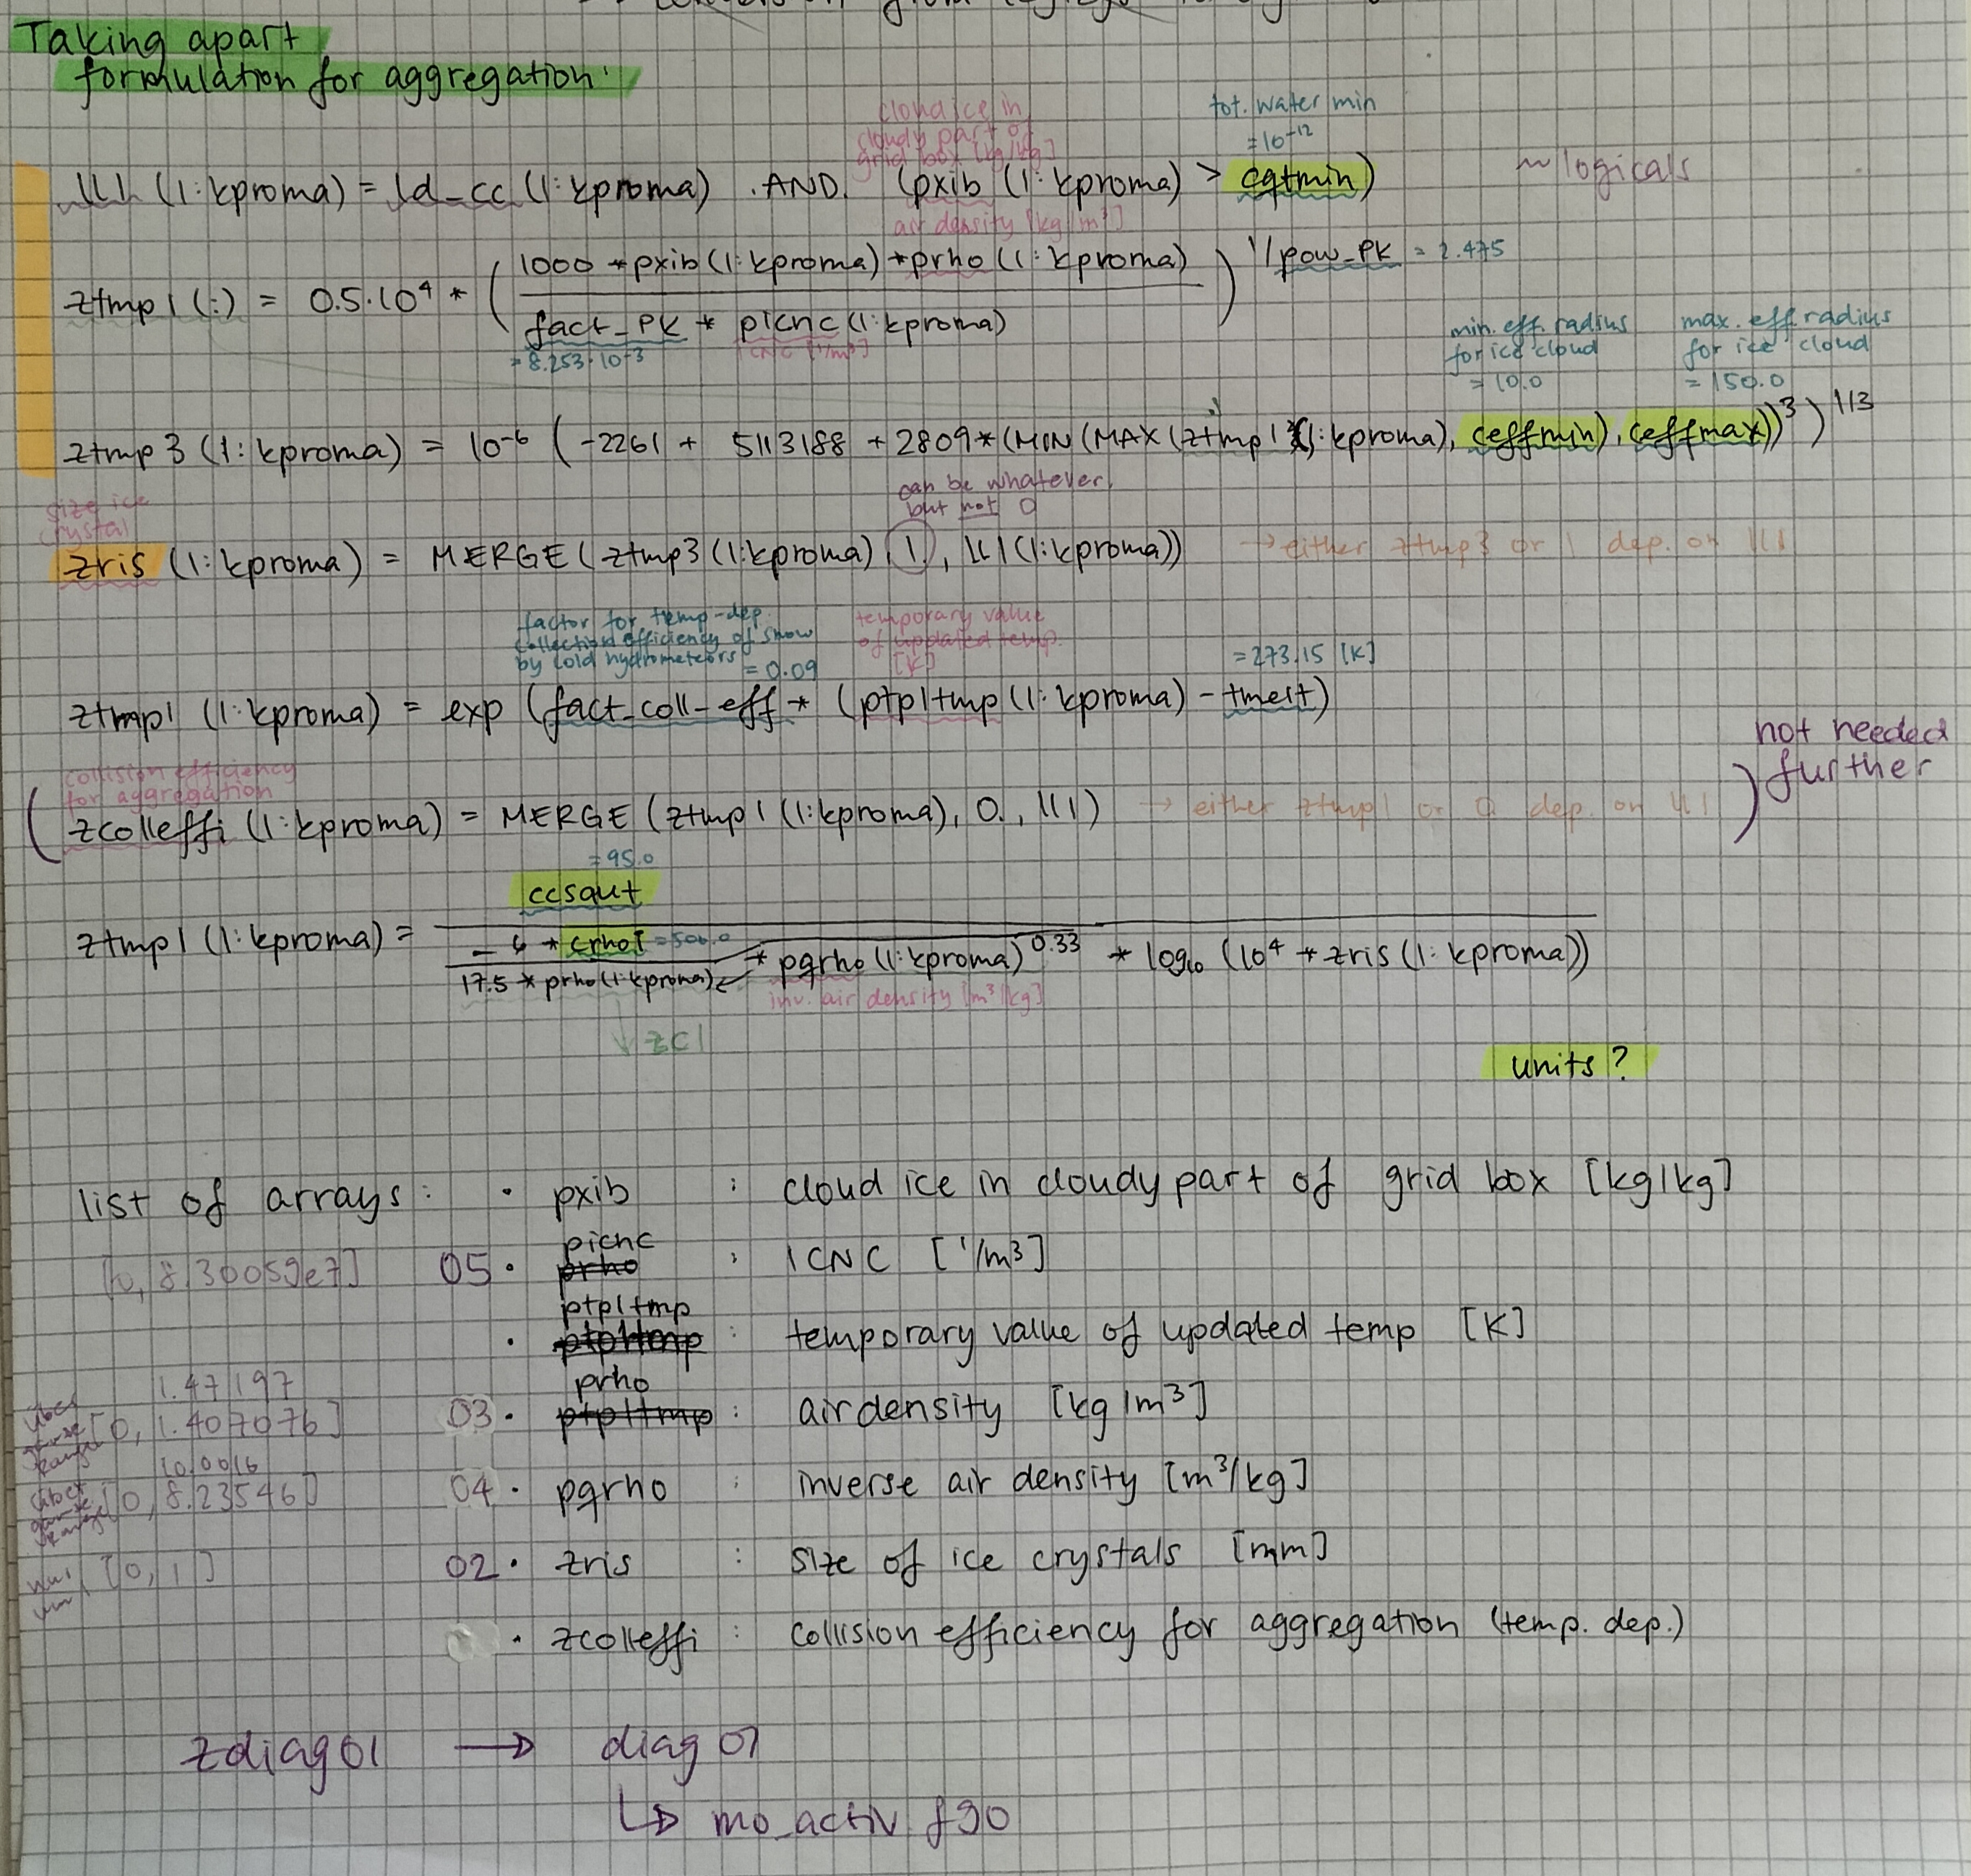 Taking apart
formulation for aggregation:
cloud ice in
cloudy part of
grid box [kg/kg]
tot. water min
= 10^-12
ll1 (1:kproma) = ld_cc (1:kproma) .AND. (pxib (1:kproma) > cqtmin)
~ logicals
air density [kg/m³]
ztmp1 (:) = 0.5·10^4 * ( 1000 * pxib (1:kproma) * prho (1:kproma) / fact_PK * picnc (1:kproma) ) ^ 1/pow_PK = 2.475
= 8.253·10^-3
ICNC [1/m³]
min. eff. radius
for ice cloud
= 10.0
max. eff. radius
for ice cloud
= 150.0
ztmp3 (1:kproma) = 10^-6 ( -2261 + 5113188 + 2809 * (MIN (MAX (ztmp1 (1:kproma), ceffmin), ceffmax))^3 )^1/3
can be whatever,
but not 0
size ice
crystal
zris (1:kproma) = MERGE (ztmp3 (1:kproma), 1., ll1 (1:kproma))
→ either ztmp3 or 1 dep. on ll1
factor for temp-dep.
collection efficiency of snow
by cold hydrometeors = 0.09
temporary value
of updated temp.
[K]
= 273.15 [K]
ztmp1 (1:kproma) = exp (fact_coll_eff * (ptp1tmp (1:kproma) - tmelt)
collision efficiency
for aggregation
( zcolleffi (1:kproma) = MERGE (ztmp1 (1:kproma), 0., ll1)
→ either ztmp1 or 0 dep. on ll1
) not needed
further
= 95.0
ccsaut
ztmp1 (1:kproma) = - 6 * crhoi = 500.0 / 17.5 * prho (1:kproma) * pqrho (1:kproma)^0.33 * log10 (10^4 * zris (1:kproma))
inv. air density [m³/kg]
↓ zc1
units?
list of arrays: · pxib : cloud ice in cloudy part of grid box [kg/kg]
picnc
[0, 8.30059e7] 05 · prho : ICNC [1/m³]
ptp1tmp
· ptp1tmp : temporary value of updated temp [K]
1.47197
prho
[0, 1.407076] 03 · ptp1tmp : air density [kg/m³]
10.0016
[0, 8.23546] 04 · pqrho : inverse air density [m³/kg]
[0, 1] 02 · zris : size of ice crystals [mm]
· zcolleffi : collision efficiency for aggregation (temp. dep.)
zdiag01 → diag01
↳ mo_activ.f90